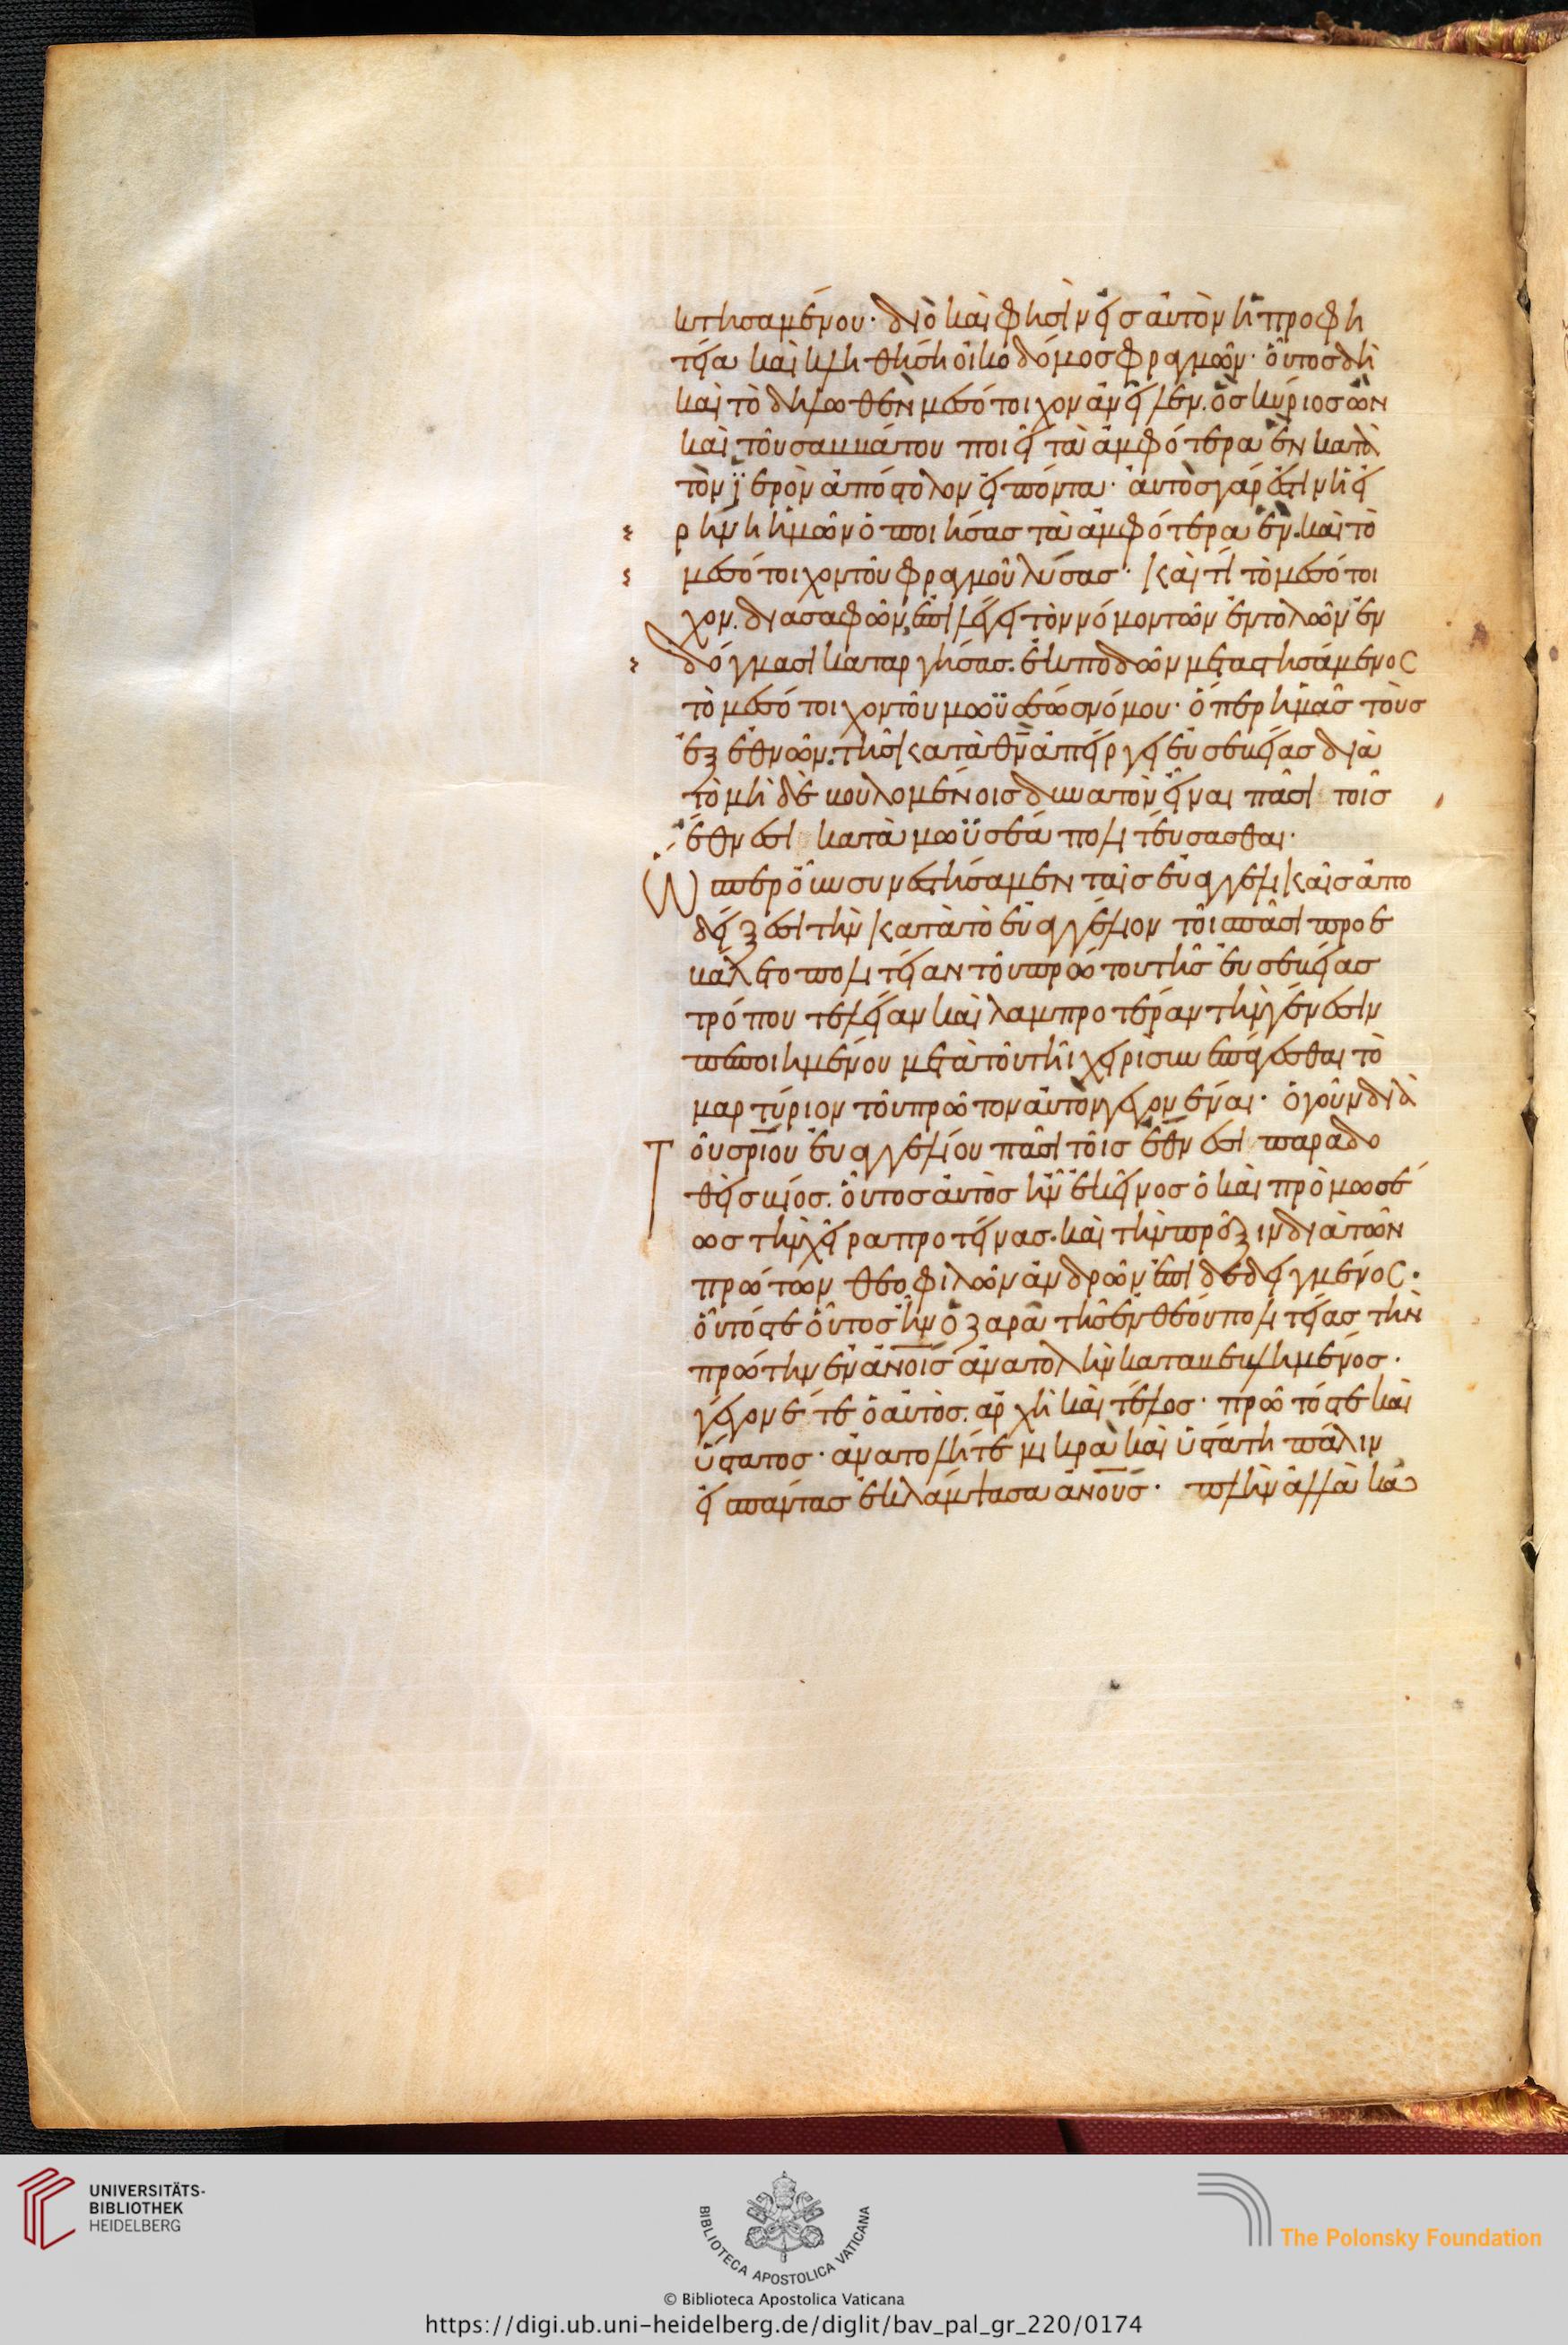 κτησαμένου· διὸ καὶ φησὶν εἰς αὐτὸν ἡ προφη
τεία καὶ κληθήση οἰκοδόμος φραγμῶν· οὗτος δὴ
καὶ τὸ δηλωθὲν μεσότοιχον ἀνεῖλεν. ὃς κύριος ὢν
καὶ τοῦ σαββάτου ποιεῖ τὰ ἀμφότερα ἓν κατὰ
τὸν ἱερὸν ἀπόστολον εἰπόντα· αὐτὸς γάρ ἐστιν ἡ εἰ
ρήνη ἡμῶν ὁ ποιήσας τὰ ἀμφότερα ἕν. καὶ τὸ
μεσότοιχον τοῦ φραγμοῦ λύσας· καὶ τί τὸ μεσότοι
χον. διασαφῶν, ἐπιλέγει τὸν νόμον τῶν ἐντολῶν ἐν
δόγμασι καταργήσας. ἐκποδῶν μεταστησάμενος
τὸ μεσότοιχον τοῦ μωϋσέως νόμου· ὅπερ ἡμᾶς τοὺς
ἐξ ἐθνῶν. τῆς κατὰ θν ἀπεῖργεν εὐσεβείας διὰ
τὸ μὴ δὲ βουλομένοις δυνατὸν εἶναι πᾶσι τοῖς
ἔθνεσι κατὰ μωϋσέα πολιτεύσασθαι·
Ὥπερ οὖν συνεστήσαμεν ταῖς εὐαγγελικαῖς ἀπο
δείξεσι τὴν κατὰ τὸ εὐαγγέλιον τοῖς πᾶσι προε
βάλετο πολιτείαν τοῦ πρώτου τῆς εὐσεβείας
τρόπου τελείαν καὶ λαμπροτέραν τὴν γένεσιν
πεποιημένου μετὰ τοῦ τῇ χειρὶ συνεπάγεσθαι τὸ
μαρτύριον τοῦ πρῶτον αὐτὸν γεγονέναι· ὁ γοῦν διὰ
Τοῦ σρίου εὐαγγελίου πᾶσι τοῖς ἔθνεσι παραδο
θεὶς βίος. οὗτος αὐτὸς ἦν ἐκεῖνος ὁ καὶ πρὸ μωσέ
ως τὴν χεῖρα προτείνας. καὶ τὴν πρᾶξιν διὰ τῶν
πρώτων θεοφιλῶν ἀνδρῶν ἐπιδεδειγμένος·
οὗτός τε οὗτος ἦν ὁ ζαρὰ τῆς ἐνθέου πολιτείας τὴν
πρώτην ἐν ἀνοις ἀνατολὴν καταβεβλημένος·
γέγονέ τε ὁ αὐτὸς. ἀρχὴ καὶ τέλος· πρῶτός τε καὶ
ὕστατος· ἀνατολή τε μικρὰ καὶ ὑστάτη πάλιν
εἰς πάντας ἐκλάμψασα ἀνους· πλὴν ἀλλὰ κα
UNIVERSITÄTS-
BIBLIOTHEK
HEIDELBERG
BIBLIOTECA APOSTOLICA VATICANA
The Polonsky Foundation
© Biblioteca Apostolica Vaticana
https://digi.ub.uni-heidelberg.de/diglit/bav_pal_gr_220/0174